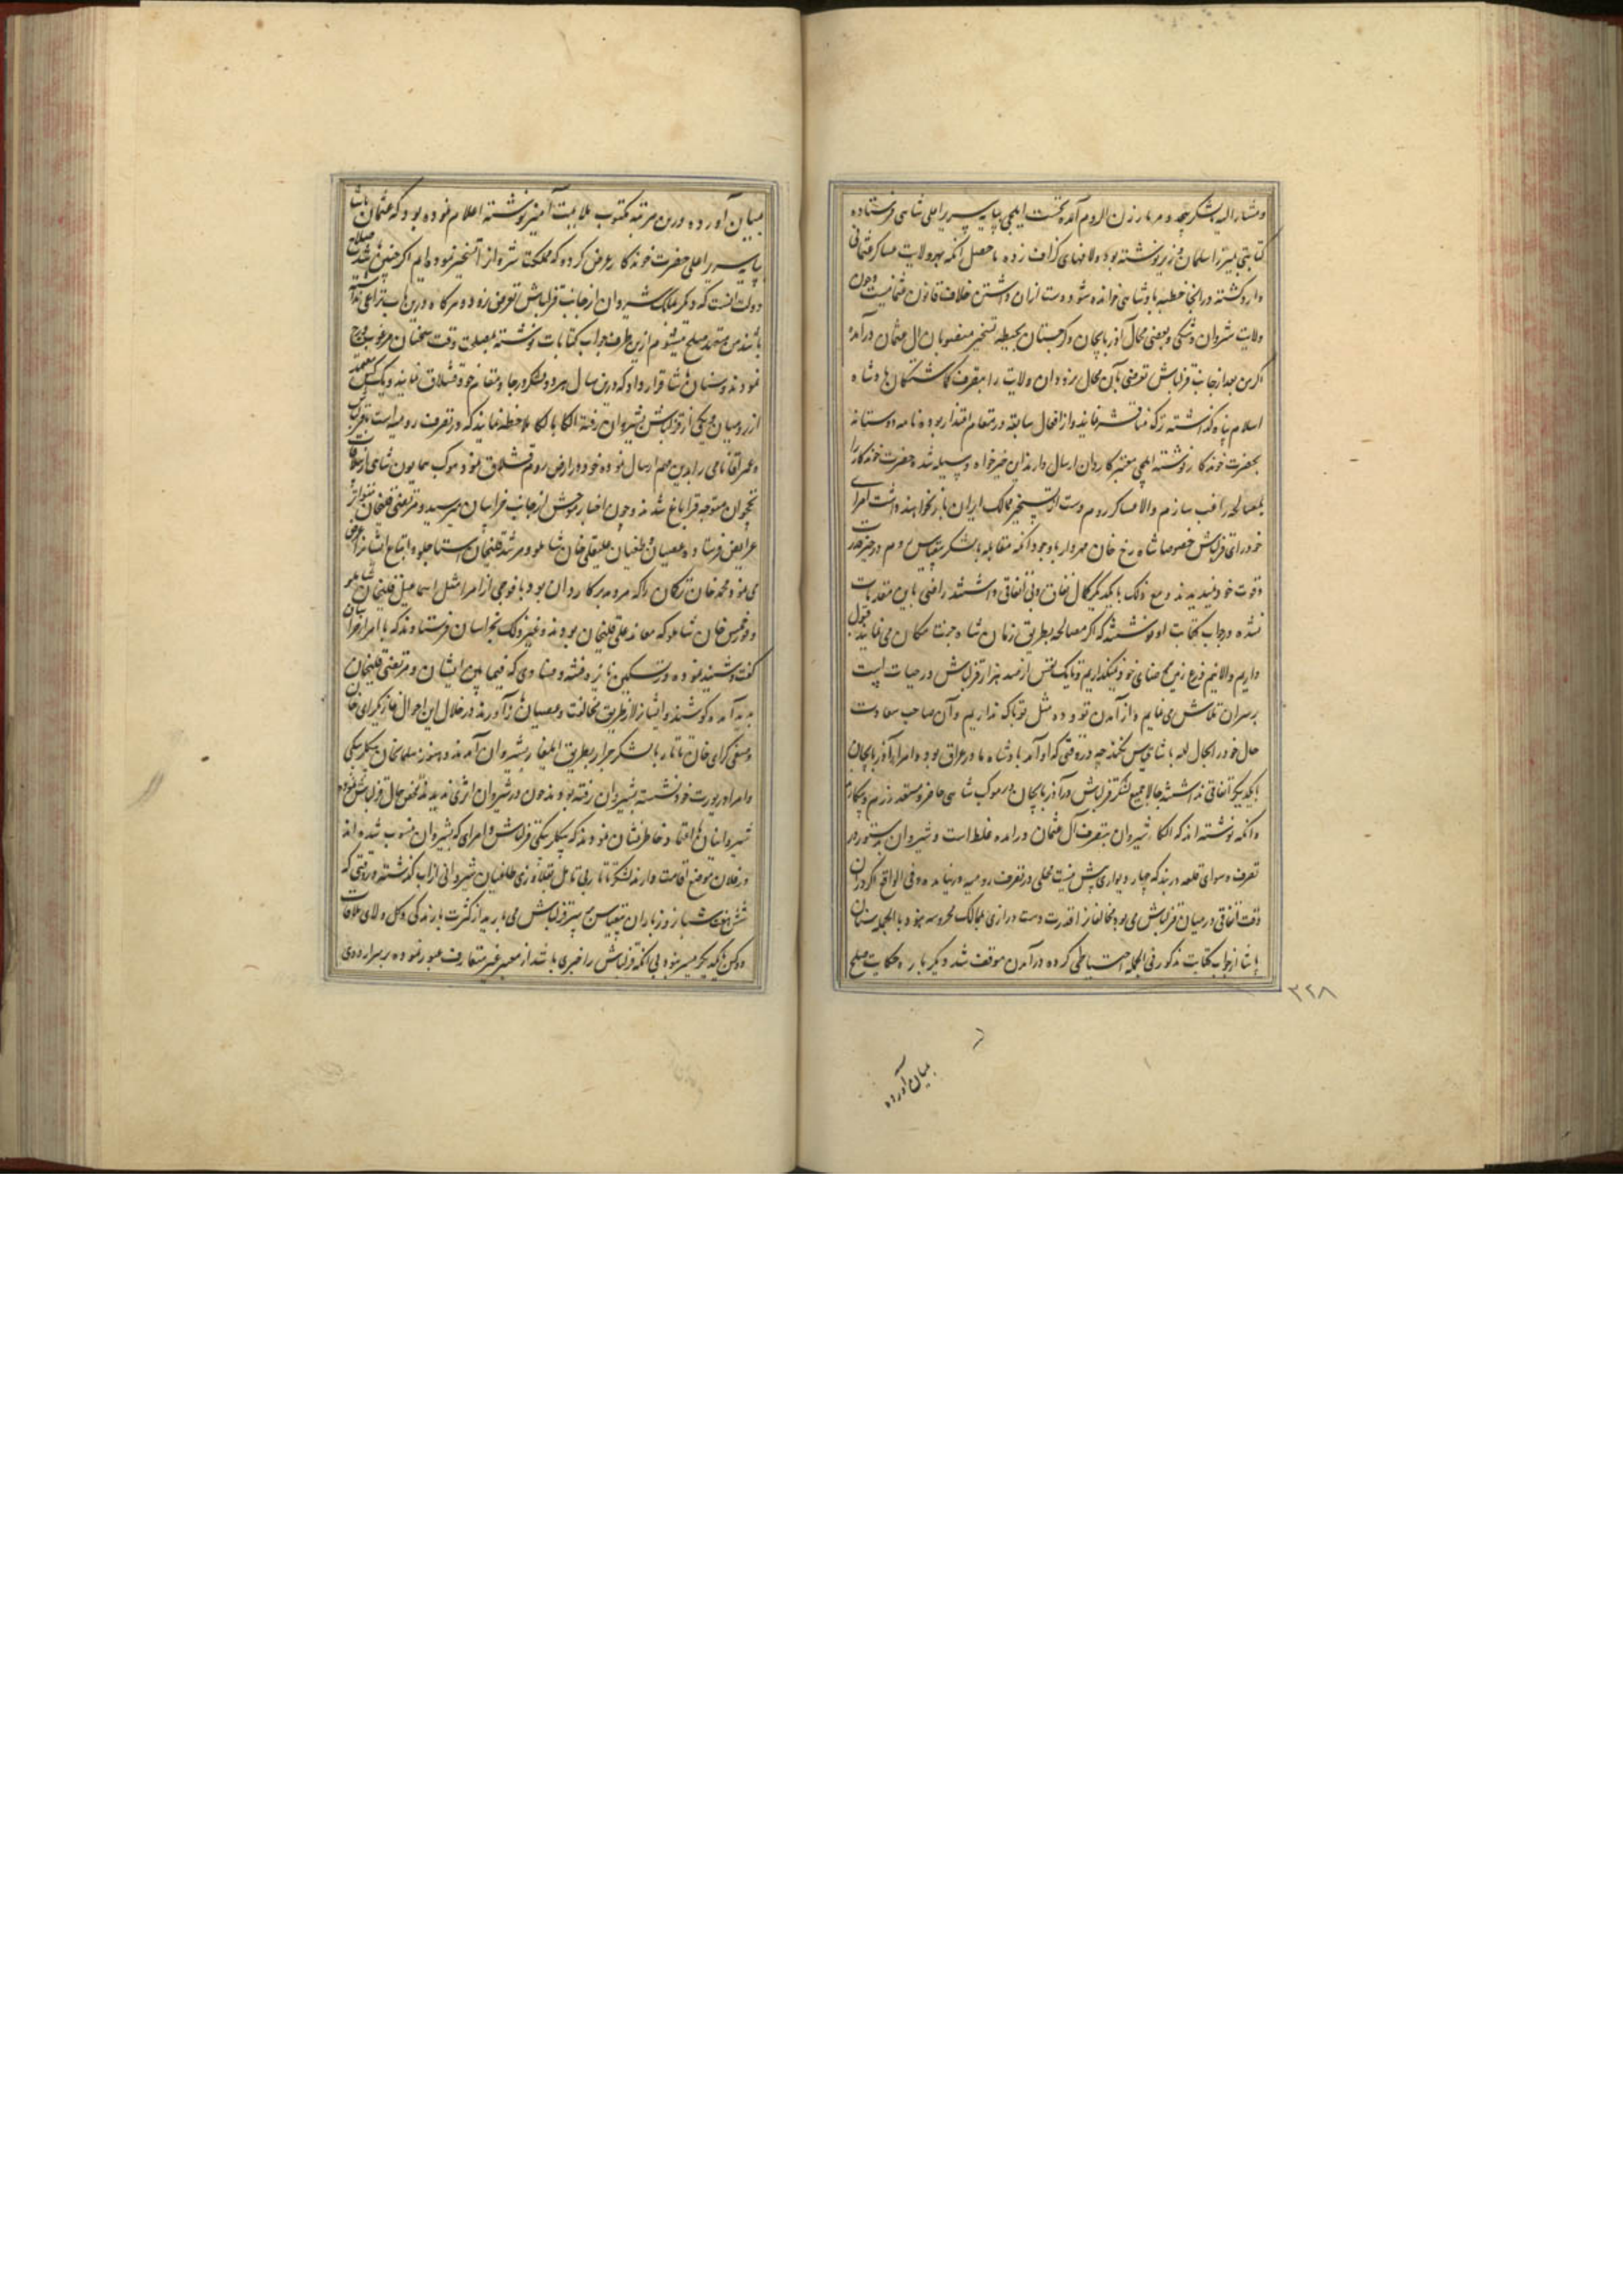 و مشارالیه بالشکر بیحد و مر بارزن الروم آمده نخست ایلچی بپایه سریر اعلی شاهی فرستاده
کتابتی بمیرزا سلمان وزیر نوشته بود و لافهای گزاف زده ماحصل آنکه بهر ولایت عساکر عثمانی
وارد گشته در آنجا خطبه پادشاهی خوانده شود دست ازان داشتن خلاف قانون عثمانیست و چون
ولایت شروان و شکی و بعضی محال آذربایجان و گرجستان بحیطه تسخیر منصوبان آل عثمان درآمده
اگر من بعد از جانب قزلباش تعرضی بآن محال نرود و آن ولایت را بتصرف گماشتگان پادشاه
اسلام پناه گذاشته ترک مناقشه نمایند و از افعال سابقه در مقام اعتذار بوده نامه دوستانه
بحضرت خوندکار نوشته ایلچی معتبر کاردان ارسال دارند این خیرخواه وسیله شده حضرت خوندکار را
بمصالحه راغب سازم والا عساکر روم دست از تسخیر ممالک ایران باز نخواهند داشت امرای
خودرای قزلباش خصوصا شاه رخ خان مهردار باوجود آنکه مقابله با لشکر بیقیاس روم در حیز قدرت
و قوت خود نمیدیدند و مع ذلک با یکدیگر کمال نفاق و بی اتفاقی داشتند راضی باین مقدمات
نشده در جواب کتابت او نوشتند که اگر مصالحه بطریق زمان شاه جنت مکان می نمایند قبول
داریم والا نیم ذرع زمین بر رضای خود نمیگذاریم و تا یک نفس از صد هزار قزلباش در حیات است
بر سر آن تلاش می نمایم و از آمدن تو و ده مثل تو باک نداریم و آن صاحب سعادت
حال خود را بحال لله پاشا قیاس نکند چه در وقتی که او آمد پادشاه ما در عراق بود و امراء آذربایجان
با یکدیگر اتفاقی نداشتند حالا جمیع لشکر قزلباش در آذربایجان در موکب شاهی حاضر و مستعد رزم و پیکارند
و آنکه نوشته اند که الکاء شیروان بتصرف آل عثمان درآمده غلط است و شیروان بدستور در
تصرف و سوای قلعه دربند که چهار دیواری بیش نیست محلی در تصرف رومیه در نیامده و فی الواقع اگر در آن
وقت اتفاقی در میان قزلباش می بود مخالفانرا قدرت دست درازی بممالک محروسه نبود بالجمله سنان
پاشا از جواب کتابت مذکور فی الجمله احتیاطی کرده در آمدن موقف شد دیگر باره حکایت صلح
۳۲۸
بمیان آورده
بمیان آورده درین مرتبه مکتوب ملایمت آمیز نوشته اعلام نموده بود که عثمان پاشا
بپایه سریر اعلی حضرت خوندکار عرض کرده که مملکت شروانرا تسخیر نموده ایم اگر چنین باشد صلاح
دولت آنست که دیگر بملک شیروان از جانب قزلباش تعرض نرود و هرگاه درین باب نزاعی نداشته
باشند من متعهد صلح میشوم ازین طرف جواب کتابات نوشته بمصلحت وقت سخنان مرغوب درج
نمودند و سنان پاشا قرار داد که درین سال هر دو لشکر در جا و مقام خود قشلاق نمایند و یک کس معتمد
از رومیان و یکی از قزلباش بشیروان رفته الکا بالکا ملاحظه نمایند که در تصرف رومیه است یا قزلباش
و عمر آقا نامی را بدین مهم ارسال نموده خود در ارض روم قشلاق نمود و موکب همایون شاهی از ییلاقات
نخجوان متوجه قراباغ شدند و چون اخبار موحش از جانب خراسان میرسید و مرتضی قلیخان متواتر
عرایض فرستاده عصیان و طغیان علیقلی خان شاملو و مرشد قلیخان استاجلو و اتباع ایشانرا عرض
می نمود محمد خان ترکمان را که مرد مدبر کاردان بود با فوجی از امرا مثل اسماعیل قلیخان شاملو
و دورمیش خان شاملو که معاند علی قلیخان بودند و غیر ذلک بخراسان فرستادند که با امراء خراسان
گفت و شنید نموده در تسکین نایره فتنه و فسادی که فیمابین ایشان و مرتضی قلیخان
پدید آمده کوشند و ایشانرا از طریق مخالفت و عصیان باز آورند در خلال این احوال غازی گرای خان
و صفی گرای خان تاتار با لشکر جرار بطریق ایلغار بشیروان آمدند و هنوز سلمان خان بیگلربیگی
و امرا در یورت خود نشسته بشیروان نرفته بودند چون در شیروان اثری ندیدند تفحص حال قزلباش نموده
شیروانیان باغیان خاطر نشان نمودند که بیگلربیگی قزلباش و امرای که بشیروان منسوب شده اند
در فلان موضع اقامت دارند لشکر تاتار بی تامل بقلاوزی طاغیان شیروانی از آب گذشته در وقتی که
شش هفت شبانه روز باران بیقیاس بر سر قزلباش می بارید از کثرت بارندگی و گل و لای ملاقات
دو کس با یکدیگر میسر نبود بی آنکه قزلباش را خبری باشد از معبر غیر متعارف عبور نموده بر سر اردوی